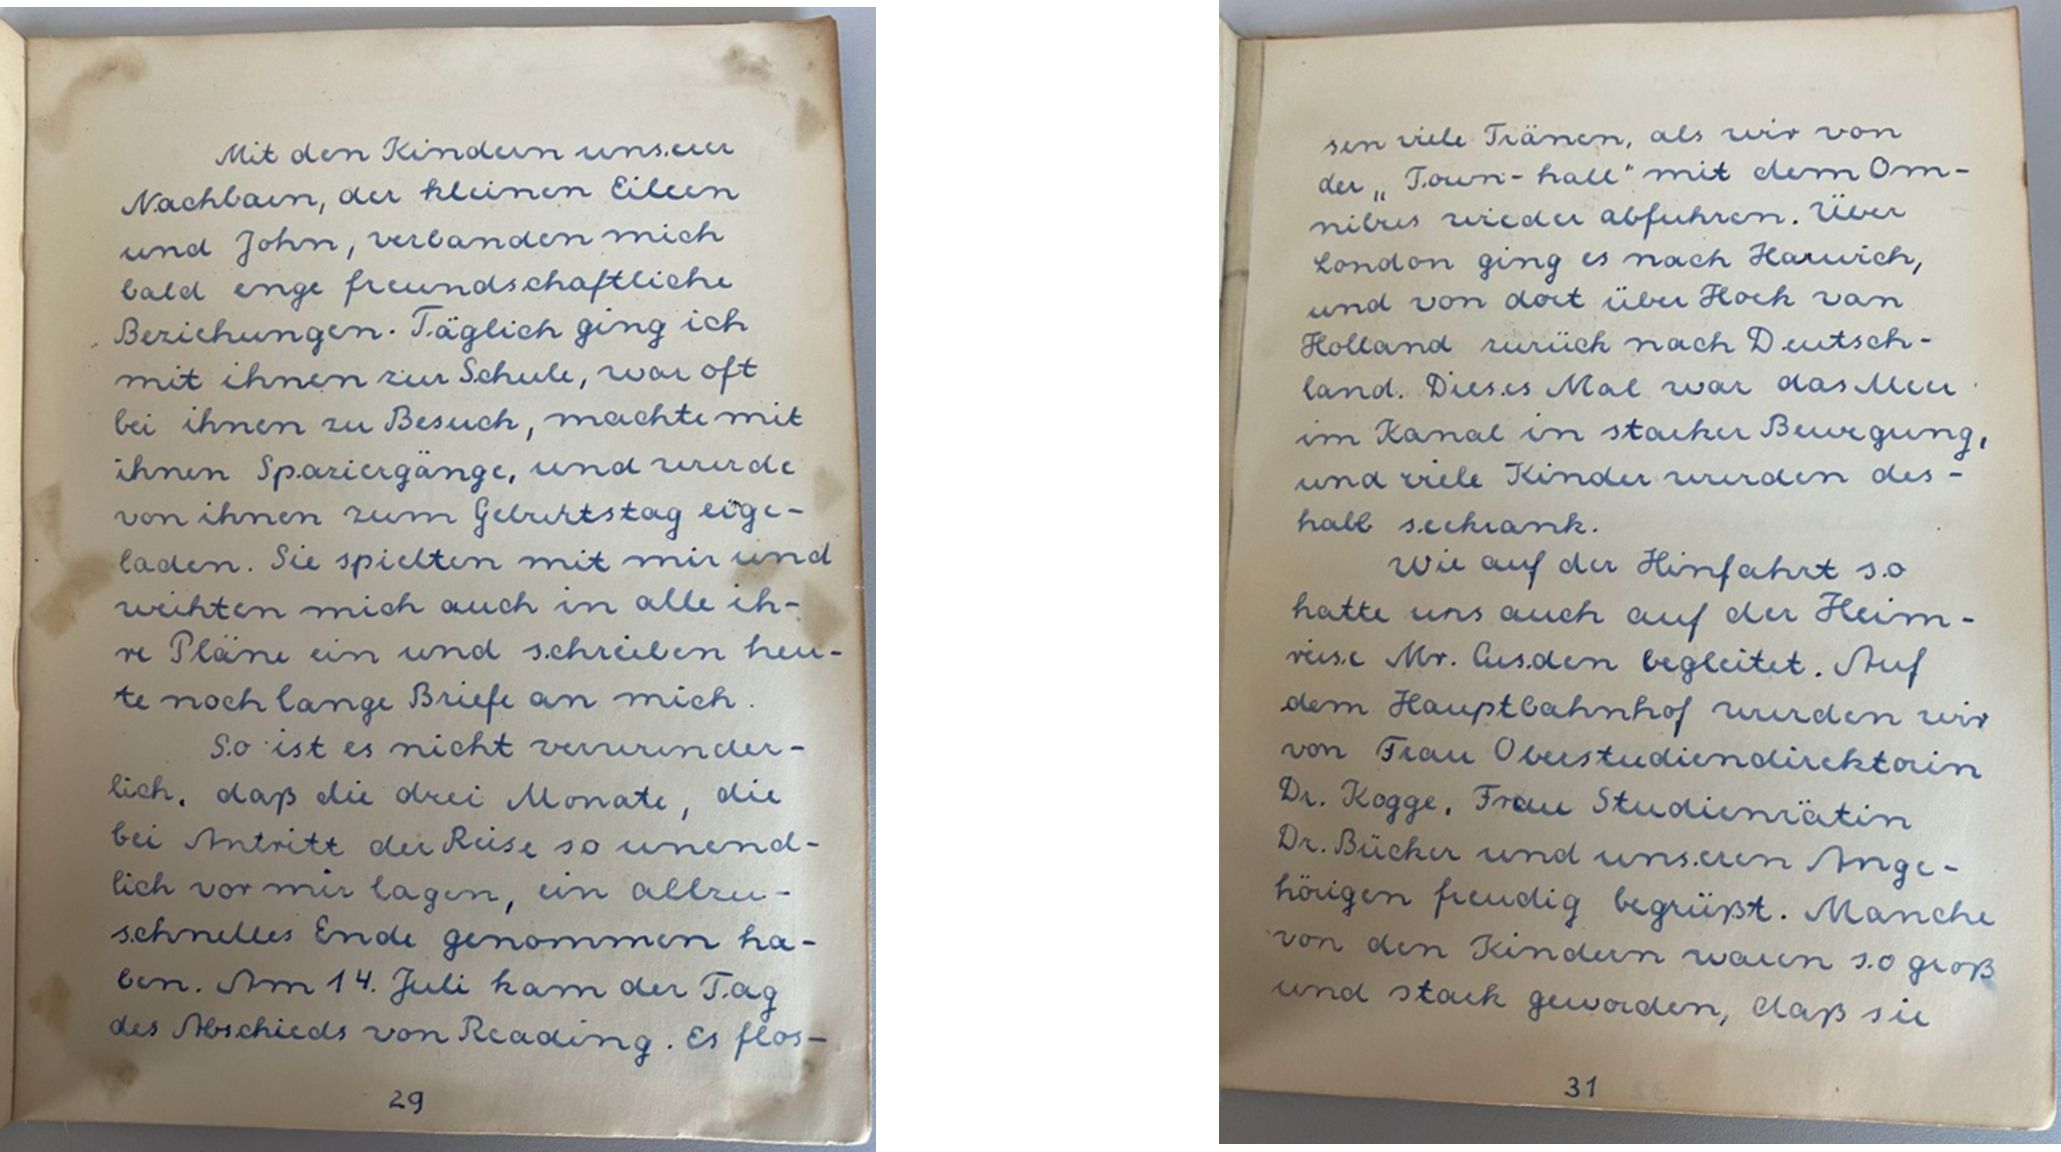 Mit den Kindern unserer
Nachbarn, der kleinen Eileen
und John, verbanden mich
bald enge freundschaftliche
Beziehungen. Täglich ging ich
mit ihnen zur Schule, war oft
bei ihnen zu Besuch, machte mit
ihnen Spaziergänge, und wurde
von ihnen zum Geburtstag eige-
laden. Sie spielten mit mir und
weihten mich auch in alle ih-
re Pläne ein und schreiben heu-
te noch lange Briefe an mich.
So ist es nicht verwunder-
lich, daß die drei Monate, die
bei Antritt der Reise so unend-
lich vor mir lagen, ein allzu-
schnelles Ende genommen ha-
ben. Am 14. Juli kam der Tag
des Abschieds von Reading. Es flos-
29
sen viele Tränen, als wir von
der „Town-hall" mit dem Om-
nibus wieder abfuhren. Über
London ging es nach Harwich,
und von dort über Hoek van
Holland zurück nach Deutsch-
land. Dieses Mal war das Meer
im Kanal in starker Bewegung,
und viele Kinder wurden des-
halb seekrank.
Wie auf der Hinfahrt so
hatte uns auch auf der Heim-
reise Mr. Cusden begleitet. Auf
dem Hauptbahnhof wurden wir
von Frau Oberstudiendirektorin
Dr. Kogge, Frau Studienrätin
Dr. Bücker und unseren Ange-
hörigen freudig begrüßt. Manche
von den Kindern waren so groß
und stark geworden, daß sie
31